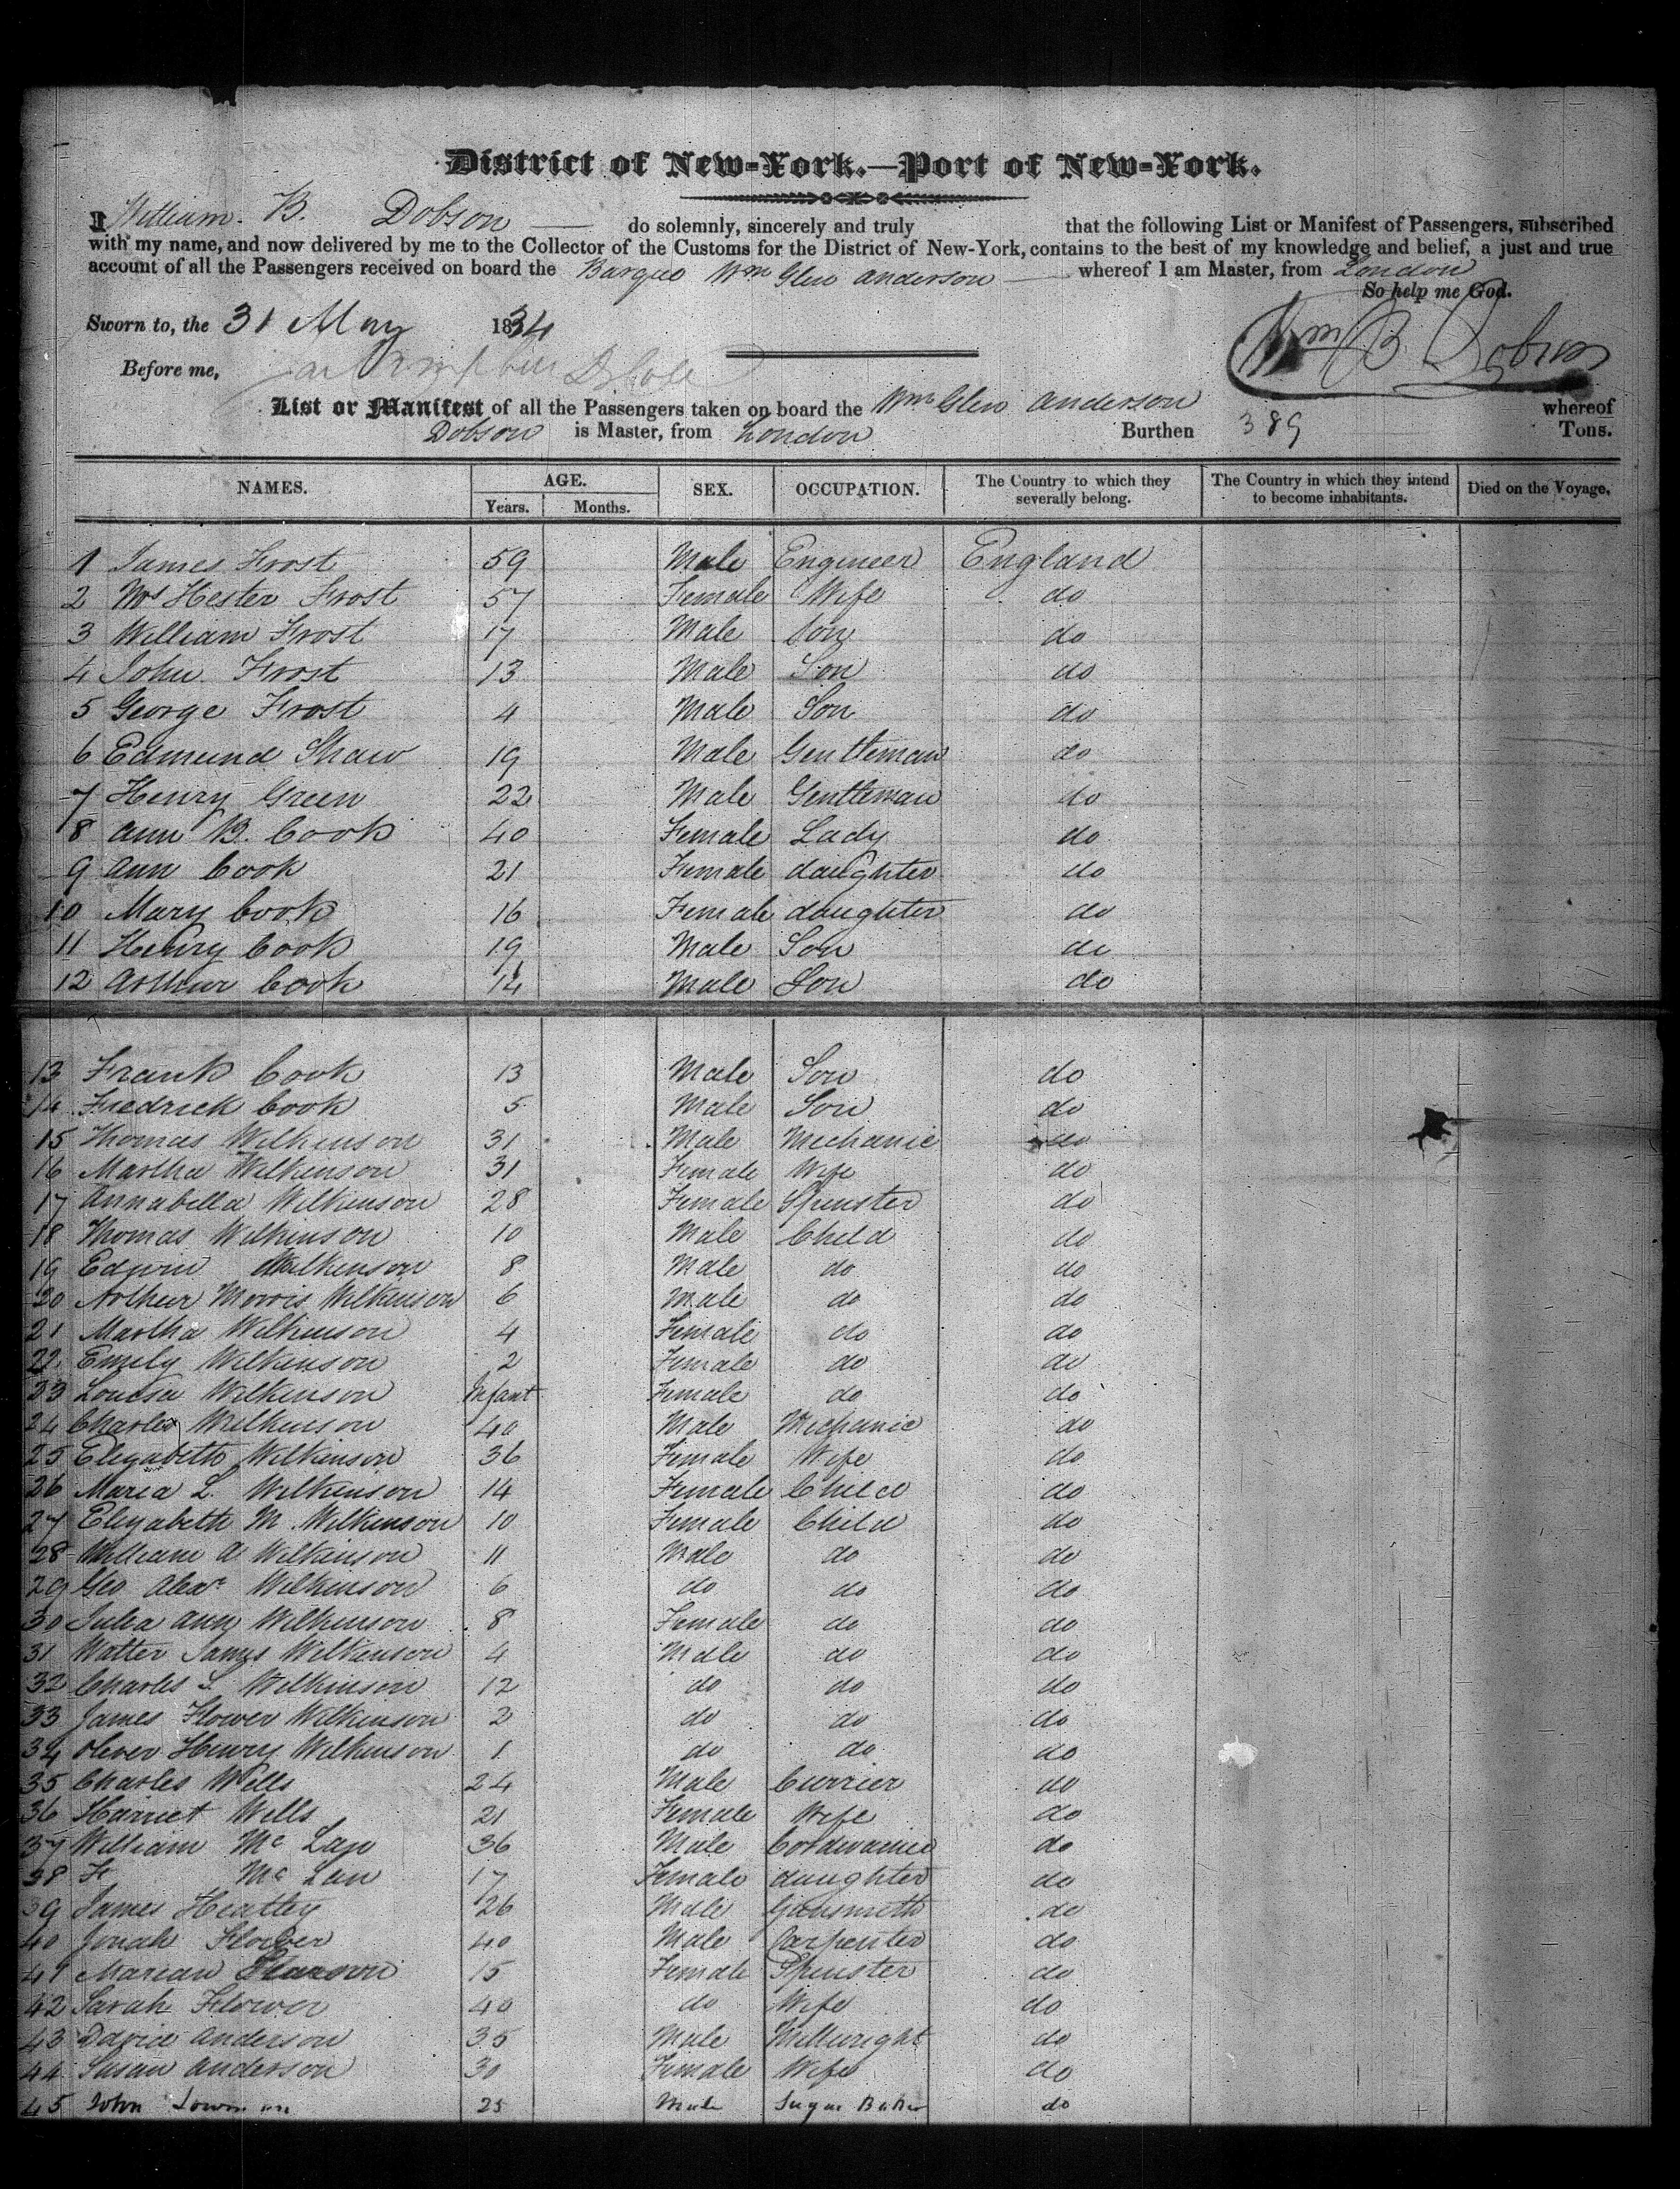 District of New-York.—Port of New-York.
I William. B. Dobson do solemnly, sincerely and truly that the following List or Manifest of Passengers, subscribed
with my name, and now delivered by me to the Collector of the Customs for the District of New-York, contains to the best of my knowledge and belief, a just and true
account of all the Passengers received on board the Barque Wm Glen Anderson whereof I am Master, from London
So help me God.
Sworn to, the 31 May 1834
Wm B. Dobson
Before me,
List or Manifest of all the Passengers taken on board the Wm Glen Anderson whereof
Dobson is Master, from London Burthen 389 Tons.
NAMES. AGE. Years. Months. SEX. OCCUPATION. The Country to which they severally belong. The Country in which they intend to become inhabitants. Died on the Voyage.
1 James Frost 59 Male Engineer England
2 Mrs Hester Frost 57 Female Wife do
3 William Frost 17 Male Son do
4 John Frost 13 Male Son do
5 George Frost 4 Male Son do
6 Edmund Shaw 19 Male Gentleman do
7 Henry Green 22 Male Gentleman do
8 Ann B. Cook 40 Female Lady do
9 Ann Cook 21 Female daughter do
10 Mary Cook 16 Female daughter do
11 Henry Cook 19 Male Son do
12 Arthur Cook 14 Male Son do
13 Frank Cook 13 Male Son do
14 Fredrick Cook 5 Male Son do
15 Thomas Wilkinson 31 Male Mechanic do
16 Martha Wilkinson 31 Female Wife do
17 Annabella Wilkinson 28 Female Spinster do
18 Thomas Wilkinson 10 Male Child do
19 Edwin Wilkinson 8 Male do do
20 Arthur Morris Wilkinson 6 Male do do
21 Martha Wilkinson 4 Female do do
22 Emily Wilkinson 2 Female do do
23 Louisa Wilkinson Infant Female do do
24 Charles Wilkinson 40 Male Mechanic do
25 Elizabeth Wilkinson 36 Female Wife do
26 Maria L. Wilkinson 14 Female Child do
27 Elizabeth M. Wilkinson 10 Female Child do
28 William A Wilkinson 11 Male do do
29 Geo Alexr Wilkinson 6 do do do
30 Julia Ann Wilkinson 8 Female do do
31 Walter James Wilkinson 4 Male do do
32 Charles S. Wilkinson 12 do do do
33 James Flower Wilkinson 2 do do do
34 Oliver Henry Wilkinson 1 do do do
35 Charles Wells 24 Male Currier do
36 Harriet Wells 21 Female Wife do
37 William Mc Lan 36 Male Cordwainer do
38 Mc Lan 17 Female daughter do
39 James Heatley 26 Male Gunsmith do
40 Jonah Flower 40 Male Carpenter do
41 Marian 15 Female Spinster do
42 Sarah Flower 40 do Wife do
43 David Anderson 35 Male Millwright do
44 Susan Anderson 30 Female Wife do
45 John 25 Male Sugar Baker do